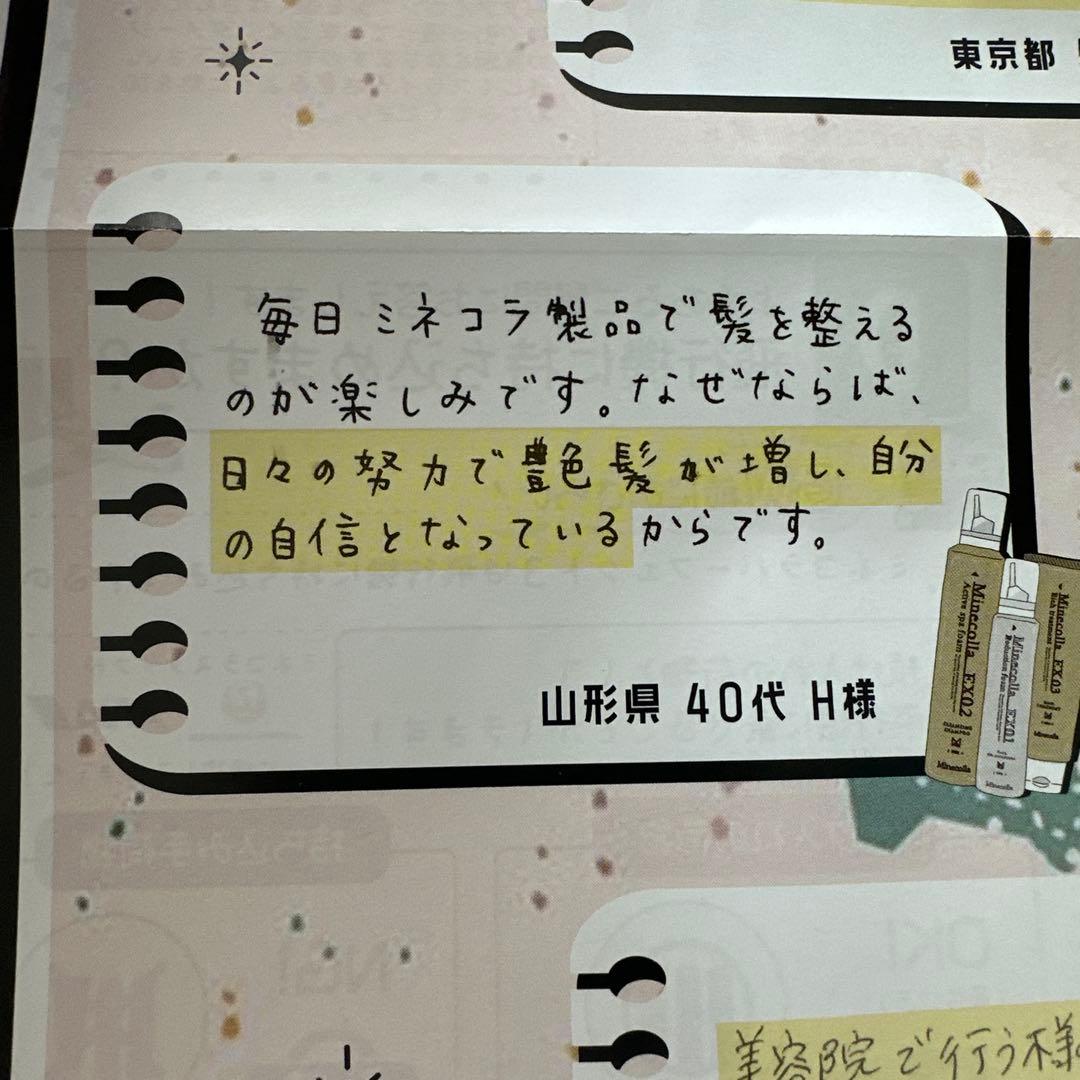 東京都
毎日ミネコラ製品で髪を整える
のが楽しみです。なぜならば、
日々の努力で艶色髪が増し、自分
の自信となっているからです。
山形県 40代 H様
Minecolla EX02
Active spa foam
CLEANSING
SHAMPOO
Minecolla
Minecolla EX01
Reduction foam
Minecolla
Minecolla EX03
Rich treatment
Minecolla
美容院で行う様